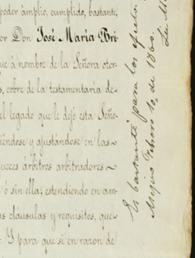 poder ámplio, cumplido, bastante,
or Don José María Bri
que á nombre de la Señora otor
s, cobre de la testamentaría de
el legado que le dejó esta Seño
éndose y ajustándose en las
veces árbitros arbitradores
ó sin ella; estendiendo en am
as cláusulas y requisitos, que
Y para que si en razon de
Es bastante para los efectos
Febrero 10, de 1860.